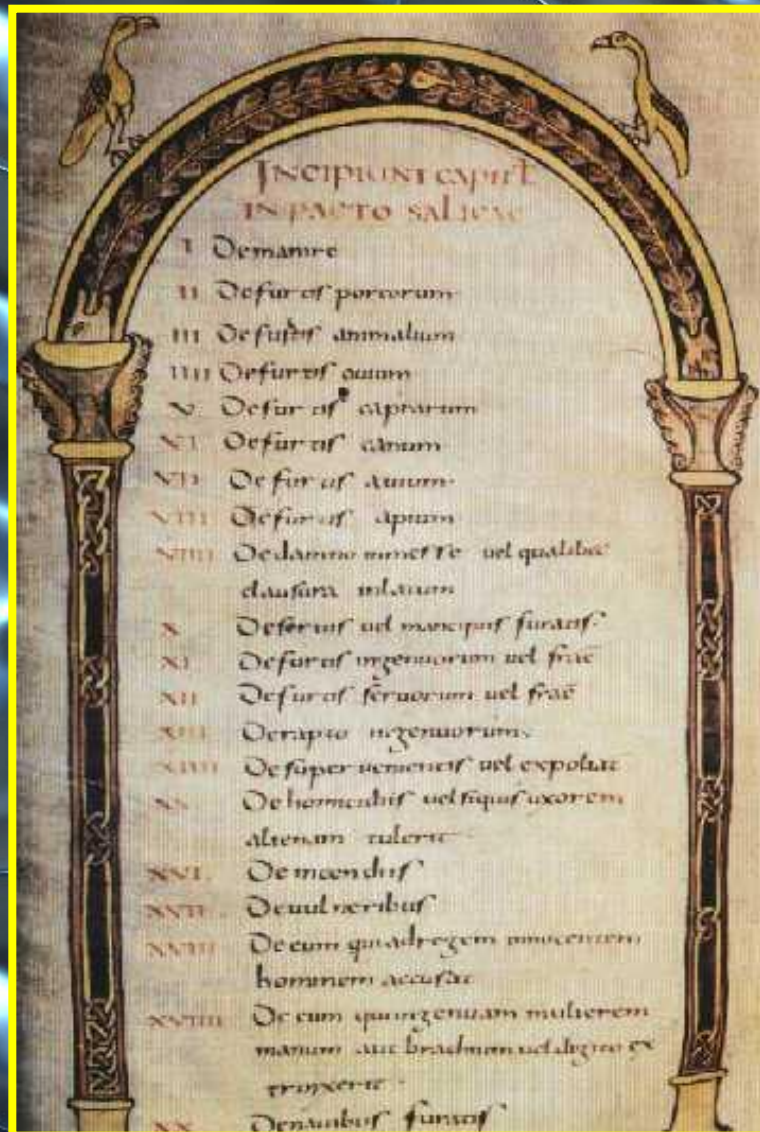 INCIPIUNT CAPITL
IN PACTO SALICAE
I De manire
II De furtis porcorum
III De furtis animalium
IIII De furtis ouium
V De furtis caprarum
VI De furtis canum
VII De furtis auium
VIII De furtis apium
VIIII De damno inmesse uel qualibet
clausura inlatum
X De seruis uel mancipiis furatis
XI De furtis ingenuorum uel frac̄
XII De furtis seruorum uel frac̄
XIII De rapto ingenuorum
XIIII De superuenientis uel expoliat
XV De homicidiis uel siquis uxorem
alienam tulerit
XVI De incendiis
XVII De uulneribus
XVIII De eum qui ad regem innocentem
hominem accusat
XVIIII De eum qui ingenuam mulierem
manum aut brachium uel digito ex
trinxerit
XX De nauibus furatis